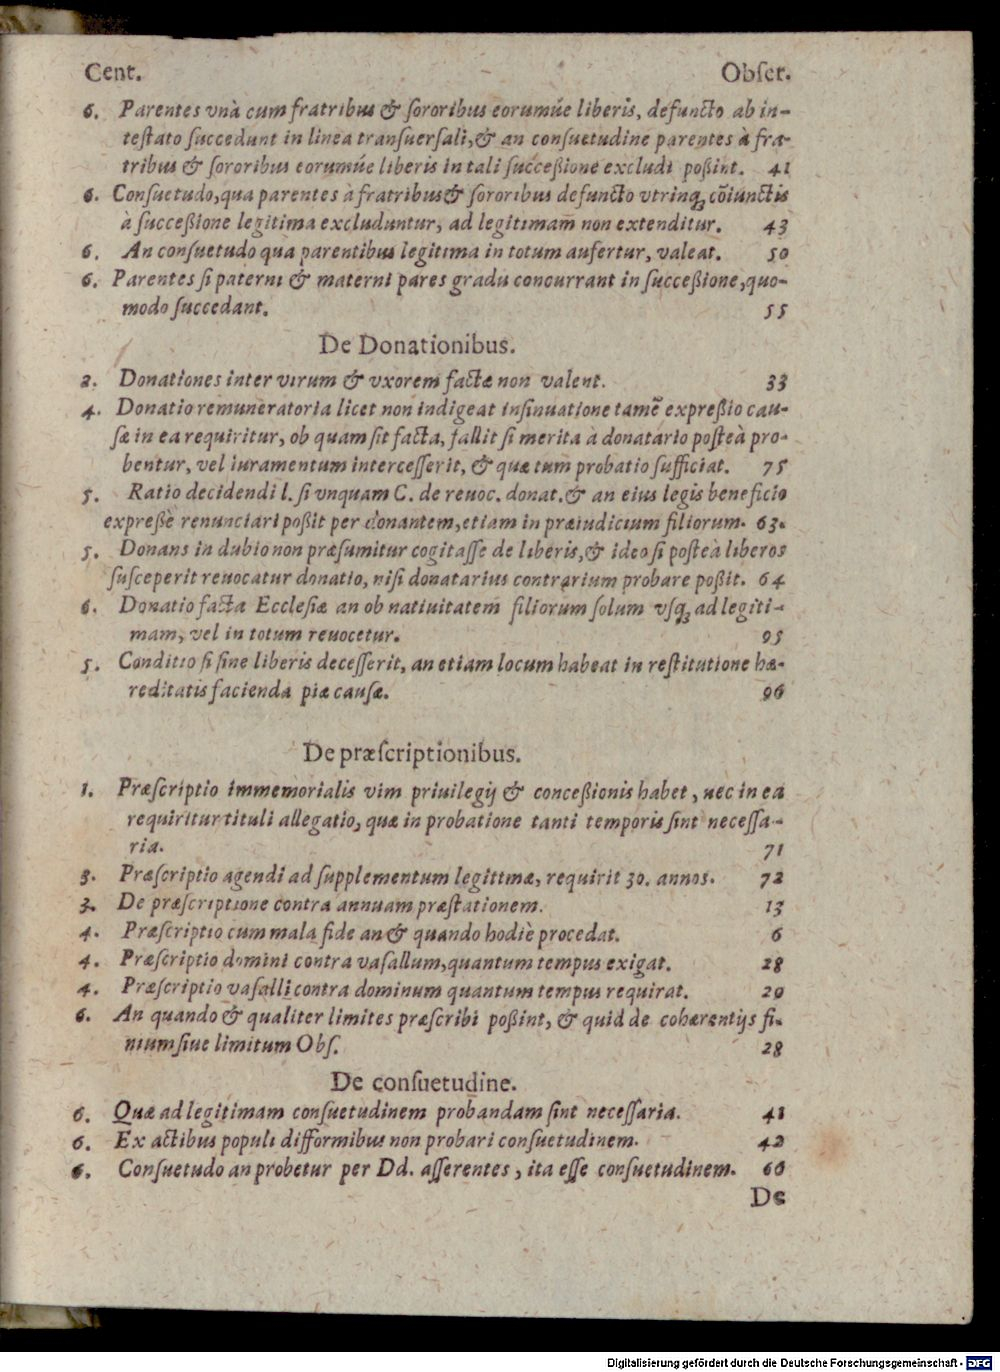 Cent. Obſer.
6. Parentes vnà cum fratribus & ſororibus eorumúe liberis, defuncto ab in-
teſtato ſuccedunt in linea tranſuerſali, & an conſuetudine parentes à fra-
tribus & ſororibus eorumúe liberis in tali ſucceßione excludi poßint. 41
6. Conſuetudo, qua parentes à fratribus & ſororibus defuncto vtrinq; cõiunctis
à ſucceßione legitima excluduntur, ad legitimam non extenditur. 43
6. An conſuetudo qua parentibus legitima in totum aufertur, valeat. 50
6. Parentes ſi paterni & materni pares gradu concurrant in ſucceßione, quo-
modo ſuccedant. 55
De Donationibus.
2. Donationes inter virum & vxorem factæ non valent. 33
4. Donatio remuneratoria licet non indigeat inſinuatione tamē expreßio cau-
ſæ in ea requiritur, ob quam ſit facta, fallit ſi merita à donatario poſteà pro-
bentur, vel iuramentum interceſſerit, & quæ tum probatio ſufficiat. 75
5. Ratio decidendi l. ſi vnquam C. de reuoc. donat. & an eius legis beneficio
expreßè renunciari poßit per donantem, etiam in præiudicium filiorum. 63.
5. Donans in dubio non præſumitur cogitaſſe de liberis, & ideo ſi poſteà liberos
ſuſceperit reuocatur donatio, niſi donatarius contrarium probare poßit. 64
6. Donatio facta Eccleſiæ an ob natiuitatem filiorum ſolum vſq; ad legiti-
mam, vel in totum reuocetur. 95
5. Conditio ſi ſine liberis deceſſerit, an etiam locum habeat in reſtitutione hæ-
reditatis facienda piæ cauſæ. 96
De præſcriptionibus.
1. Præſcriptio immemorialis vim priuilegij & conceßionis habet, nec in ea
requiritur tituli allegatio, quæ in probatione tanti temporis ſint neceſſa-
ria. 71
3. Præſcriptio agendi ad ſupplementum legitimæ, requirit 30. annos. 72
3. De præſcriptione contra annuam præſtationem. 13
4. Præſcriptio cum mala fide an & quando hodiè procedat. 6
4. Præſcriptio domini contra vaſallum, quantum tempus exigat. 28
4. Præſcriptio vaſalli contra dominum quantum tempus requirat. 29
6. An quando & qualiter limites præſcribi poßint, & quid de cohærentijs fi-
nium ſiue limitum Obſ. 28
De conſuetudine.
6. Quæ ad legitimam conſuetudinem probandam ſint neceſſaria. 41
6. Ex actibus populi difformibus non probari conſuetudinem. 42
6. Conſuetudo an probetur per Dd. aſſerentes, ita eſſe conſuetudinem. 60
De
Digitalisierung gefördert durch die Deutsche Forschungsgemeinschaft - DFG